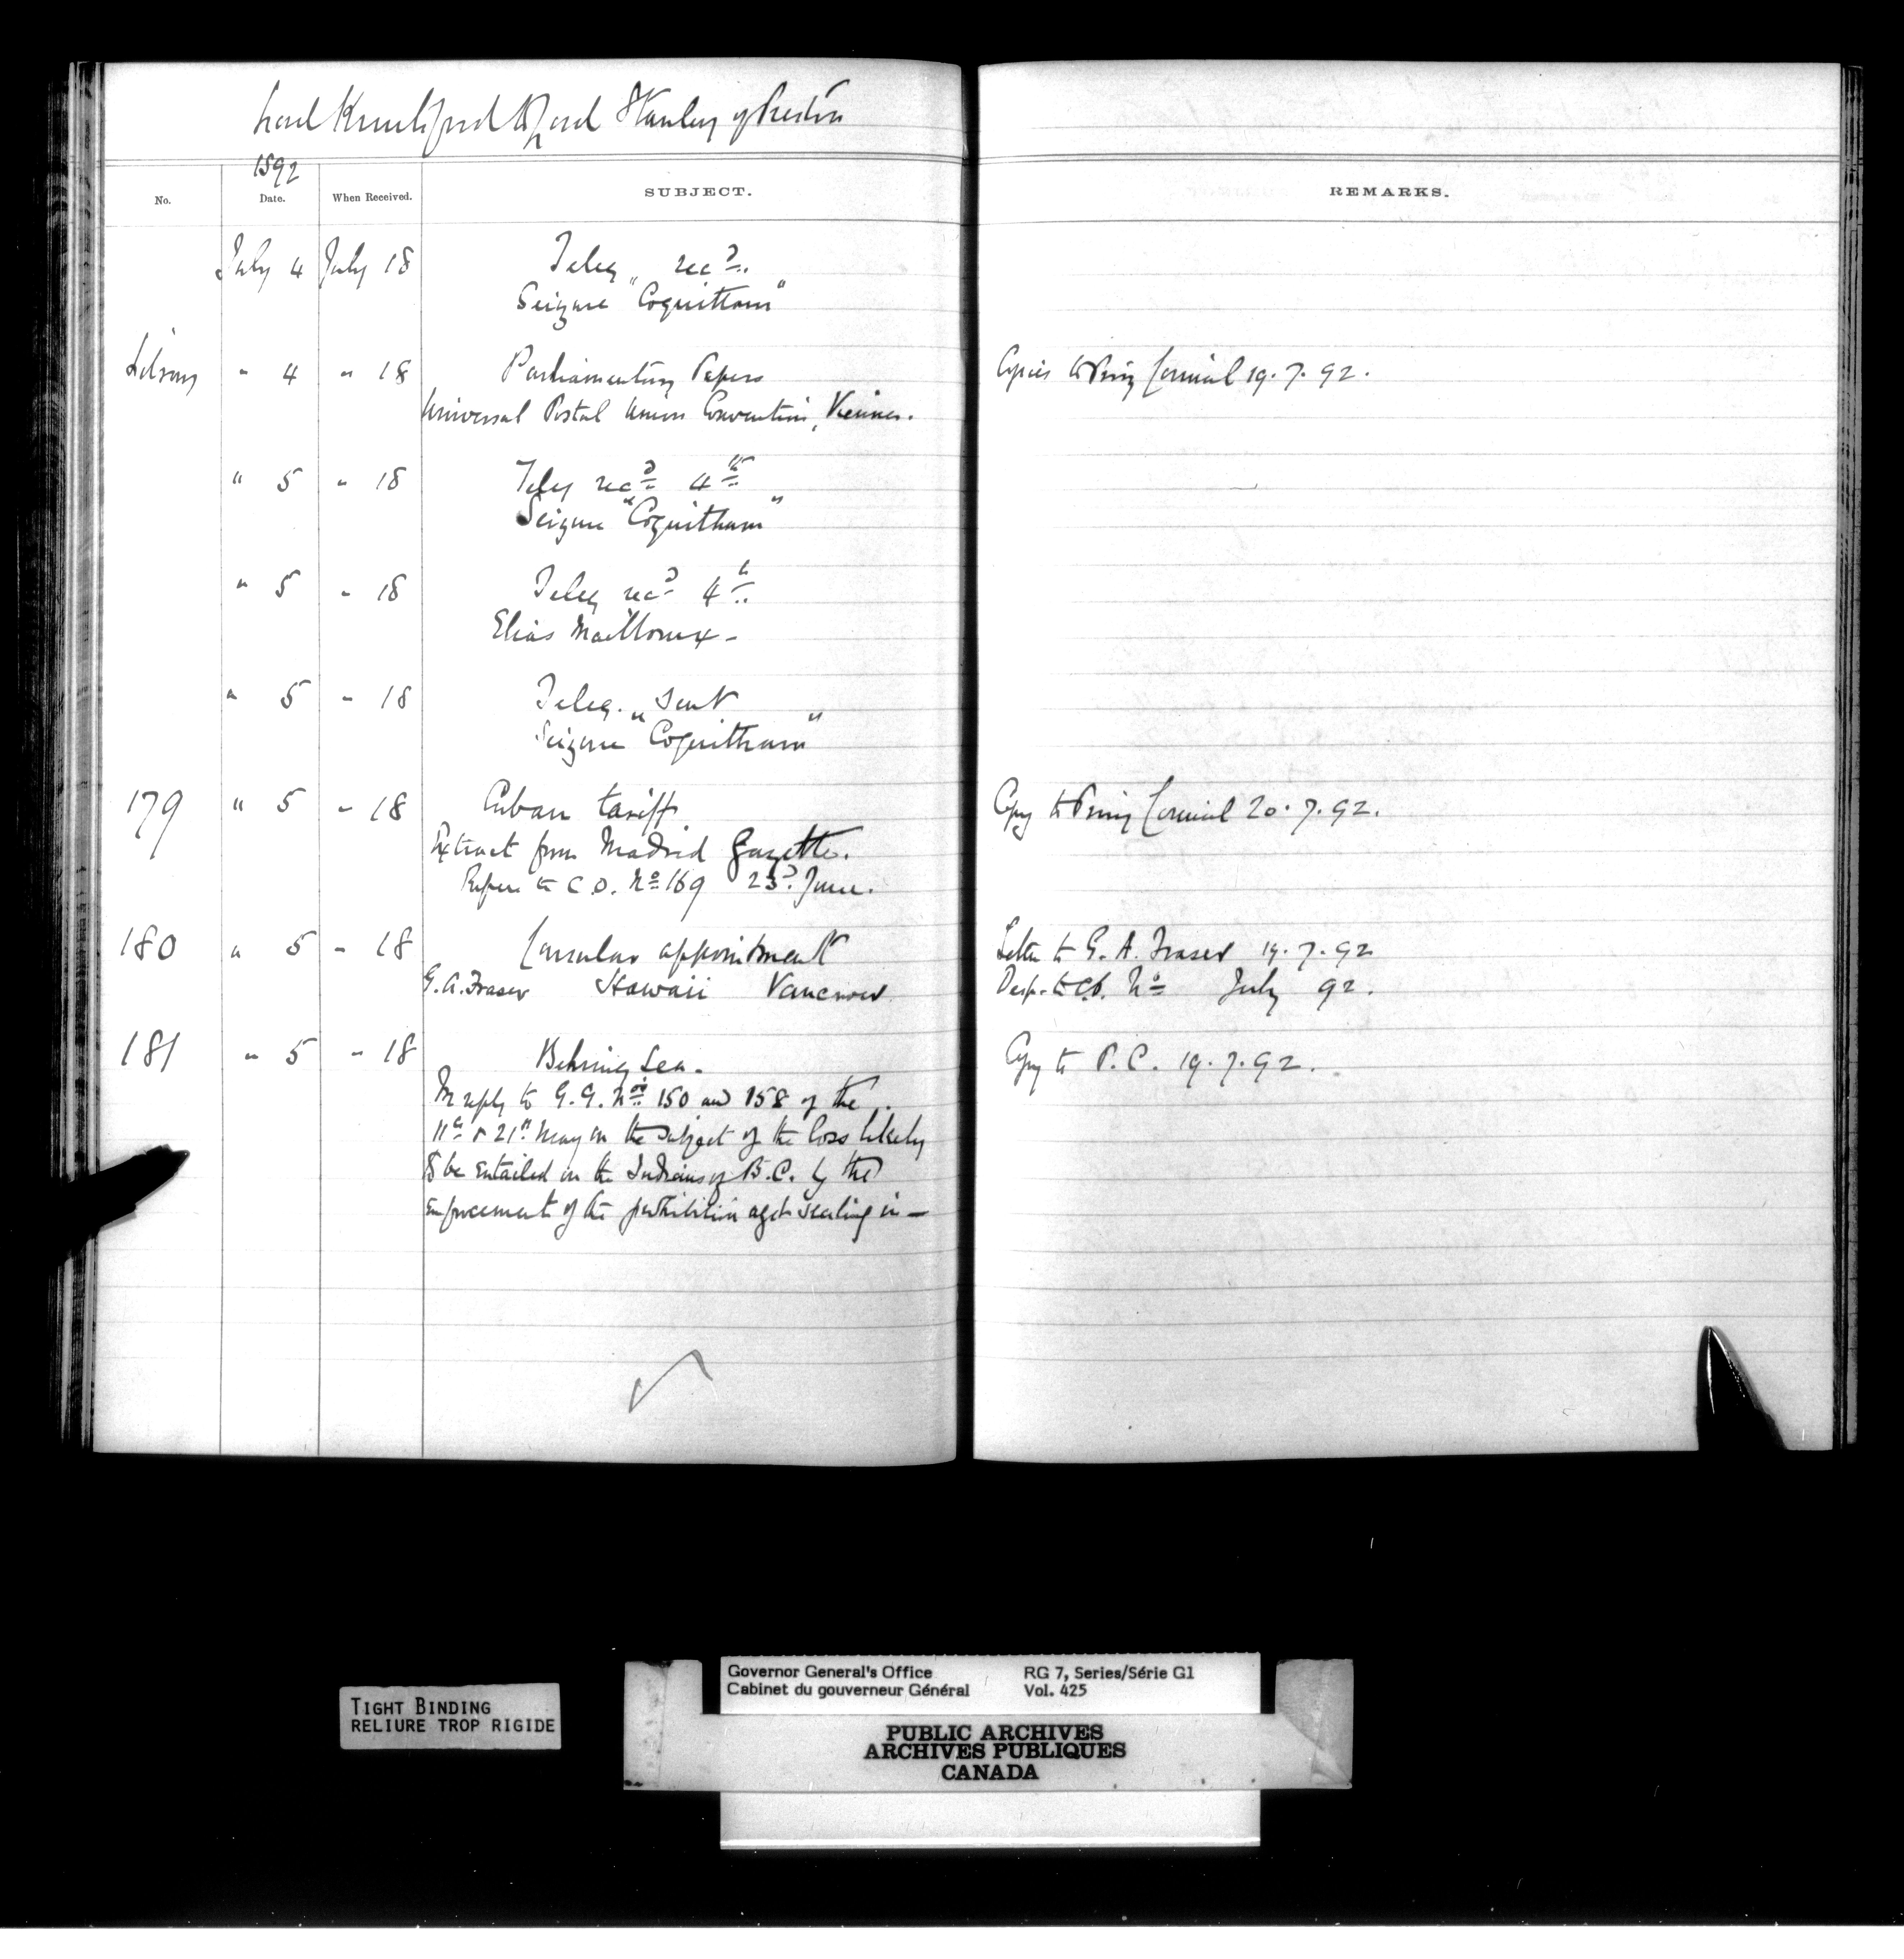 Lord Knutsford to Lord Stanley of Preston
1892
No. Date. When Received. SUBJECT. REMARKS.
July 4 July 18 Teleg recd.
Seizure "Coquitlam"
" 4 " 18 Parliamentary Papers Copies to Privy Council 19.7.92.
Universal Postal Union Convention, Vienna.
" 5 " 18 Teleg recd 4th
Seizure "Coquitlam"
" 5 " 18 Teleg recd 4th
Elias Mailloux -
" 5 " 18 Teleg. sent
Seizure "Coquitlam"
179 " 5 " 18 Cuban tariff Copy to Privy Council 20.7.92.
Extract from Madrid Gazette.
Refers to C.O. No 169 23d June.
180 " 5 " 18 Consular appointment Letter to G. A. Fraser 19.7.92
G.A. Fraser Hawaii Vancouver Desp. to C.O. No July 92.
181 " 5 " 18 Behring Sea. Copy to P.C. 19.7.92.
In reply to G.G. Nos 150 and 158 of the
11th & 21st May on the subject of the loss likely
to be entailed on the Indians of B.C. by the
enforcement of the prohibition agst sealing in —
TIGHT BINDING
RELIURE TROP RIGIDE
Governor General's Office RG 7, Series/Série G1
Cabinet du gouverneur Général Vol. 425
PUBLIC ARCHIVES
ARCHIVES PUBLIQUES
CANADA